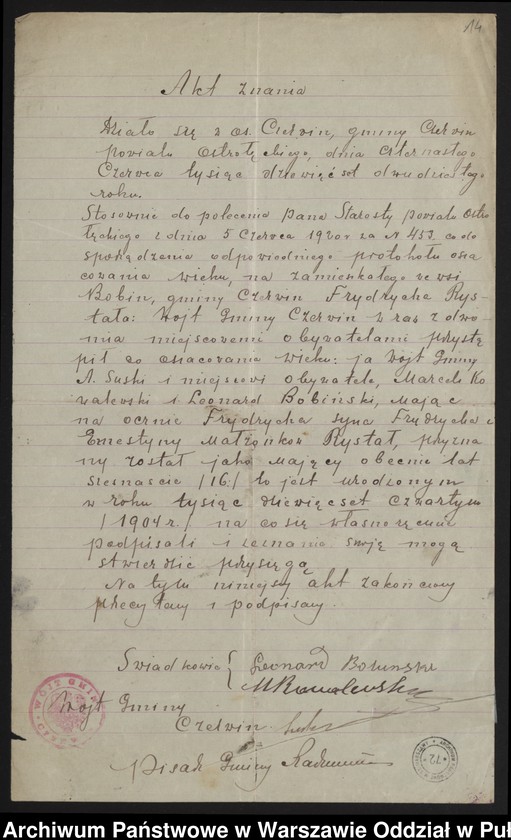 14
Akt znania
Działo się w os. Czerwin, gminy Czerwin
powiatu Ostrołęckiego, dnia czternastego
Czerwca tysiąc dziewięćset dwudziestego
roku.
Stosownie do polecenia Pana Starosty powiatu Ostro
łęckiego z dnia 5 Czerwca 1920 r za N 453. co do
sporządzenia odpowiedniego protokołu osza
cowania wieku, na zamieszkałego we wsi
Bobin, gminy Czerwin Frydrycha Rys-
tała: Wójt Gminy Czerwin wraz z dwo-
ma miejscowemi obywatelami przystą
pił do oszacowania wieku: ja Wójt Gminy
A. Suski i miejscowi obywatele, Marceli Ko
walewski i Leonard Bobiński, mając
na ocznie Frydrycha syna Frydrycha i
Ernestyny Małżonków Rystał, przyzna
ny został jako mający obecnie lat
szesnaście /16/ to jest urodzonym
w roku tysiąc dziewięćset czwartym
/1904 r./ na co się własnoręcznie
podpisali i zeznanie swoję mogą
stwierdzić przysięgą
Na tym niniejszy akt zakończony
przeczytany i podpisany.
Swiadkowie { Leonard
MKowalewski
Wójt Gminy
Czerwin
pisarz Gminy
WÓJT GMINY
72
Archiwum Państwowe w Warszawie Oddział w Puł